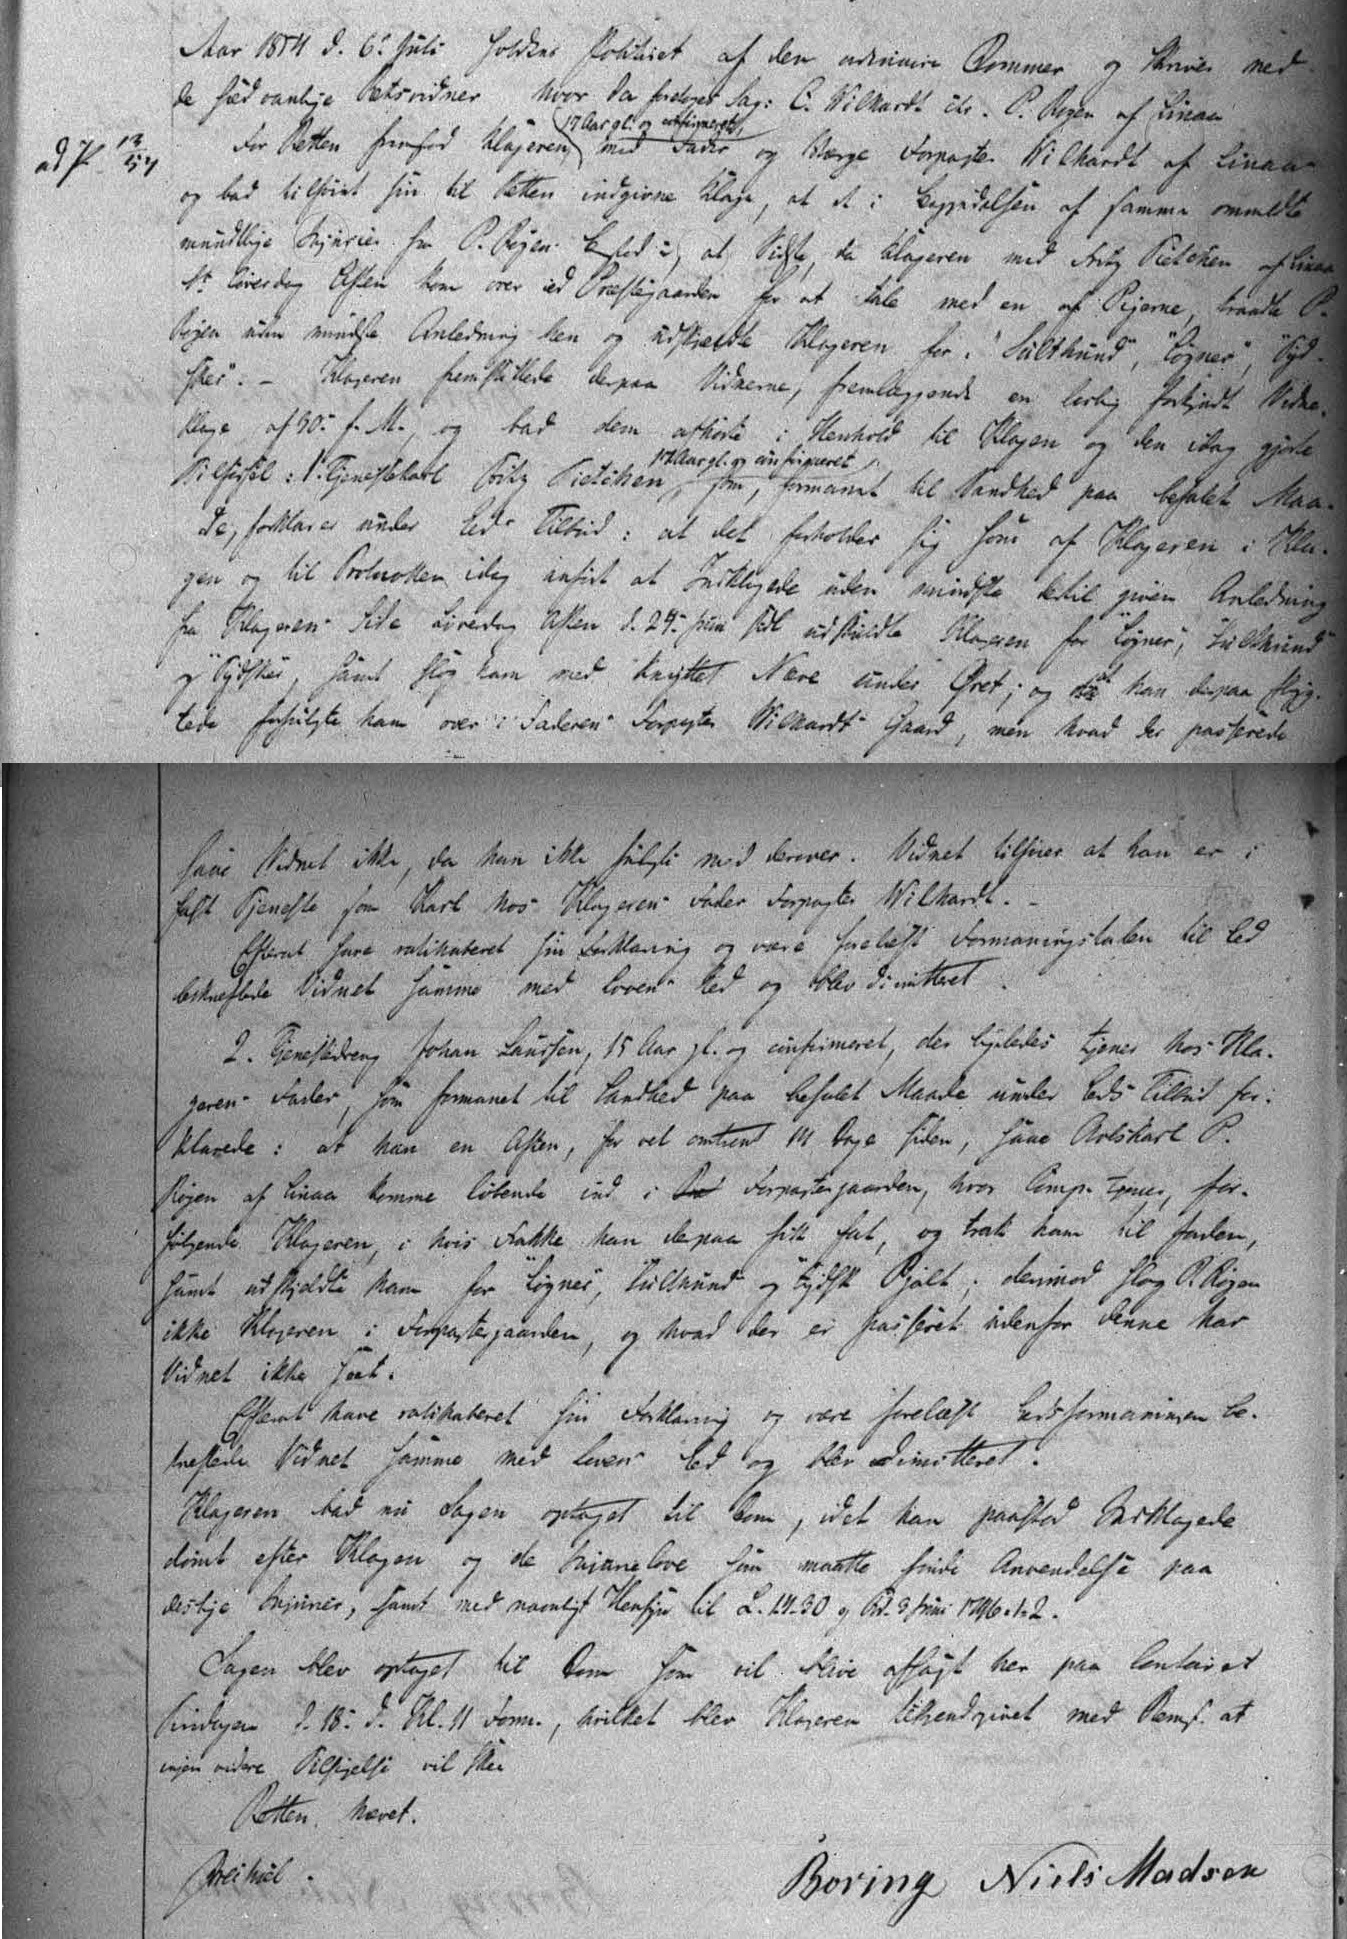 Aar 1854 d. 6t Juli holdtes Politiret af den ordinaire Dommer og Skriver med
de sædvanlige Retsvidner hvor da foretoges Sag: C. Wilhardt ctr. P. Røgen af Linaa
17 Aar gl. og confirmeret,
For Retten fremstod Klageren med Fader og Værge Forpagter Wilhardt af Linaa
ad P 13/54
og bad tilført sin til Retten indgivne Klage, at de i Begyndelsen af samme ommeldte
mundtlige Injurier fra P. Røgen bestod i, at Sidste, da Klageren med Fritz Pietchen af Linaa
St. Løverdag Aften kom over ved Præstegaarden for at tale med en af Pigerne, traadte P.
Røgen uden mindste Anledning hen og udskjeldte Klageren for: "Sulthund", "Løgner", "Tyd-
sker". - Klageren fremstillede derpaa Vidnerne, fremlæggende en lovlig forkyndt Vidne-
klage af 30t f. M., og bad dem afhørte i Henhold til Klagen og den idag gjorte
17 Aar gl. og confirmeret
Tilførsel: 1. Tjenestekarl Fritz Pietchen, som, formanet til Sandhed paa befalet Maa-
de, forklarer under Eds Tilbud: at det forholder sig som af Klageren i Kla-
gen og til Protocollen idag anført at Indklagede uden mindste dertil given Anledning
fra Klagerens Side Løverdag Aften d. 24t Juni sidst udskjeldte Klageren for "Løgner", "Sulthund"
og "Tydsker", samt slog ham med knyttet Næve under Øret; og da han derpaa flyg-
tede forfulgte ham over i Faderens Forpagter Wilhardts Gaard, men hvad der passerede
saae Vidnet ikke, da han ikke fulgte med derover. Vidnet tilføier at han er i
fast Tjeneste som Karl hos Klagerens Fader Forpagter Wilhardt. -
Efterat have ratihaberet sin Forklaring og være forelæst Formaningstalen til Ed
bekræftede Vidnet samme med Lovens Ed og blev dimitteret.
2. Tjenestedreng Johan Laussen, 15 Aar gl. og confirmeret, der ligeledes tjener hos Kla-
gerens Fader, som formanet til Sandhed paa befalet Maade under Eds Tilbud for-
klarede: at han en Aften, for vel omtrent 14 Dage siden, saae Avlskarl P.
Røgen af Linaa komme løbende ind i Forpagtergaarden, hvor Comp. tjener, for-
følgende Klageren, i hvis Frakke han derpaa fik fat, og trak ham til Jorden,
samt udskjeldte ham for "Løgner", "Sulthund" og "tydsk Pjalt"; derimod slog P. Røgen
ikke Klageren i Forpagtergaarden, og hvad der er passeret udenfor denne har
Vidnet ikke seet.
Efterat have ratihaberet sin Forklaring og være forelæst Edsformaningen be-
kræftede Vidnet samme med Lovens Ed og blev dimitteret.
Klageren bad nu Sagen optaget til Dom, idet han paastod Indklagede
dømt efter Klagen og de Injurielove som maatte finde Anvendelse paa
deslige Injurier, samt med navnligt Hensyn til L. 1.4-30 og Frd. 3 Juni 1796 1-2.
Sagen blev optaget til Dom som vil blive afsagt her paa Contoiret
Tirsdagen d. 18t d. Kl. 11 Form., hvilket blev Klageren tilkendegivet med Bemk. at
ingen videre Tilsigelse vil skee
Retten hævet.
Boring Niels Madsen